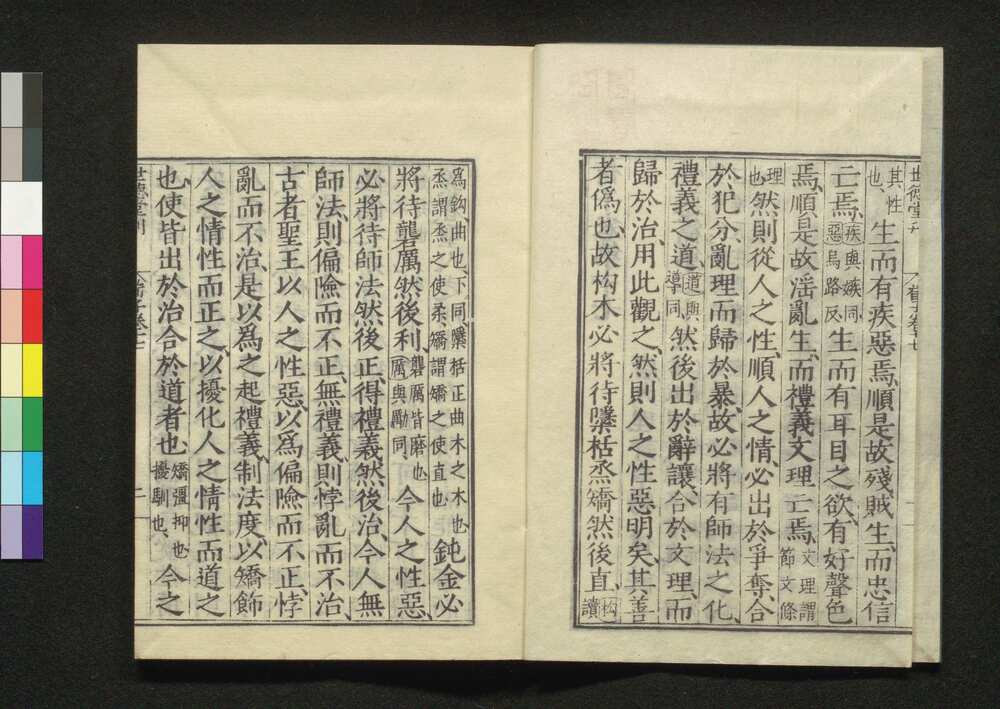 世德堂刊 荀子卷十七
其性也生而有疾惡焉順是故殘賊生而忠信
亡焉疾與嫉同惡烏路反生而有耳目之欲有好聲色
焉順是故淫亂生而禮義文理亡焉文理謂節文條
理也然則從人之性順人之情必出於爭奪合
於犯分亂理而歸於暴故必將有師法之化
禮義之道道與導同然後出於辭讓合於文理而
歸於治用此觀之然則人之性惡明矣其善
者僞也故枸木必將待檃栝烝矯然後直枸讀
爲鈎曲也下同檃栝正曲木之木也烝謂烝之使柔矯謂矯之使直也鈍金必
將待礱厲然後利礱厲皆磨也厲與勵同今人之性惡
必將待師法然後正得禮義然後治今人無
師法則偏險而不正無禮義則悖亂而不治
古者聖王以人之性惡以爲偏險而不正悖
亂而不治是以爲之起禮義制法度以矯飾
人之情性而正之以擾化人之情性而道之
也使皆出於治合於道者也矯彊抑也擾馴也今之
世德堂刊 荀子卷十七 二